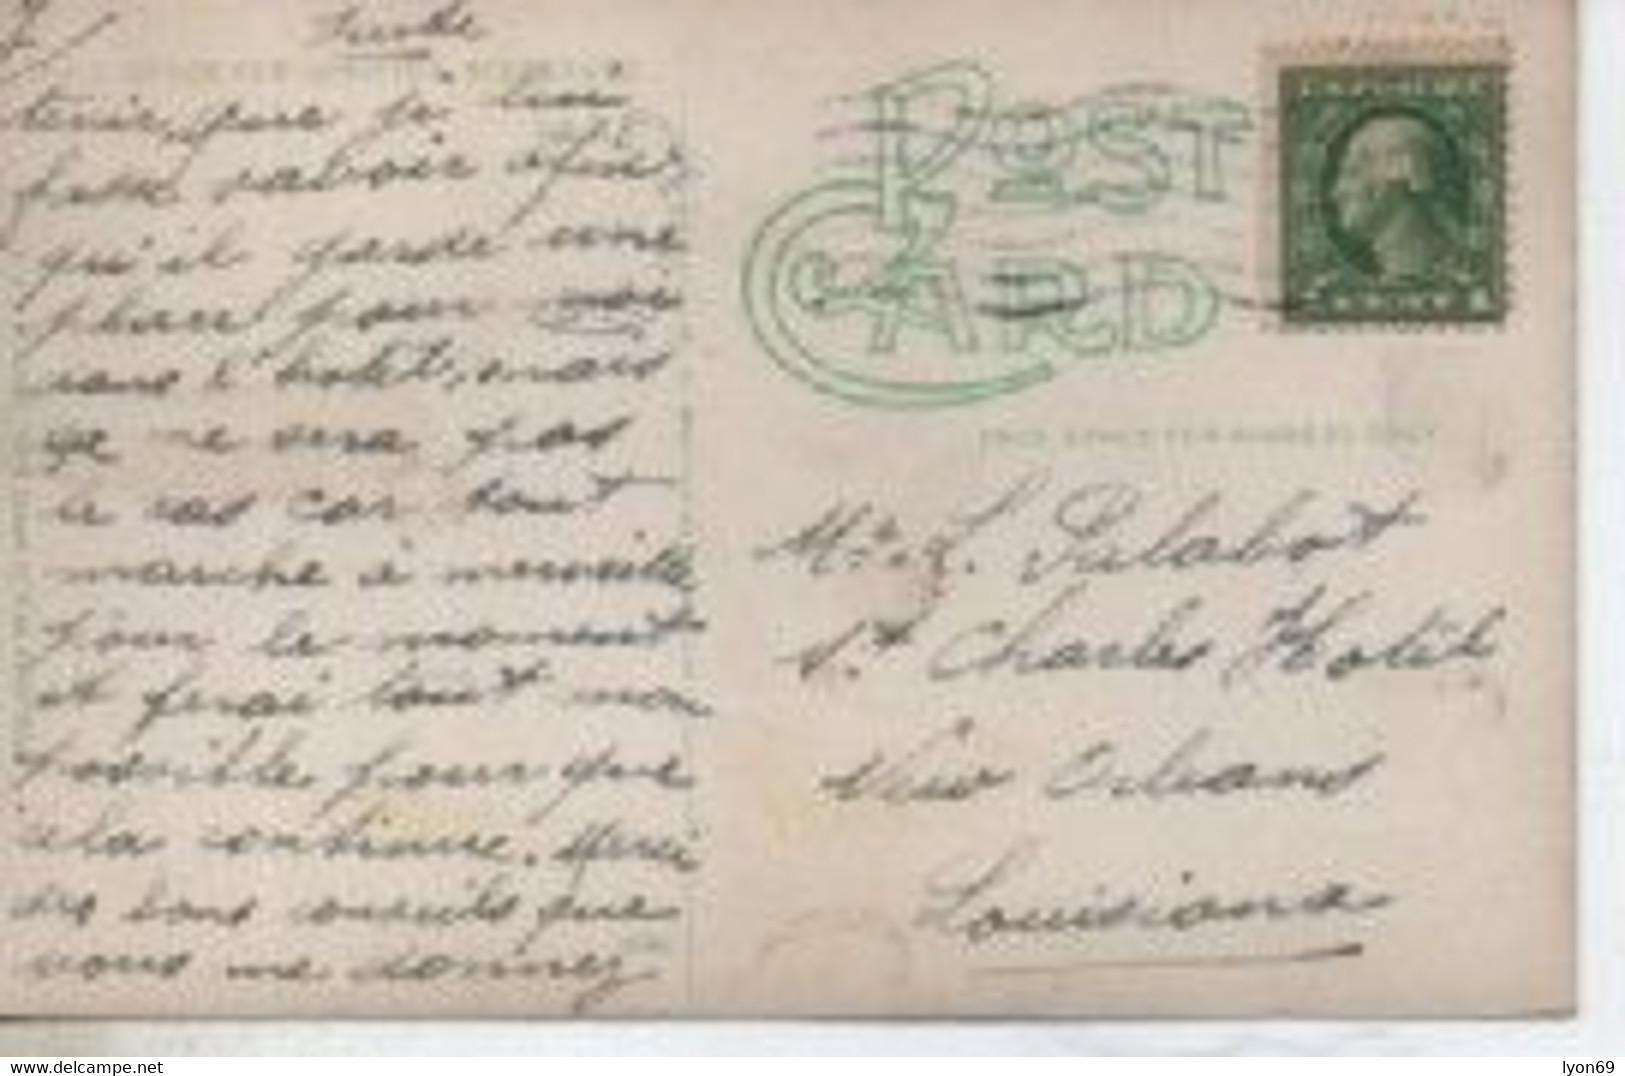 Suite
tenir, que je
savoir afin
qu'il garde une
place pour moi
dans l'hotel, mais
ça ne sera pas
le cas car tout
marche à merveille
pour le moment
et ferai tout mon
possible pour que
cela continue. Merci
des bons conseils que
vous me donnez
POST CARD
THIS SPACE FOR ADDRESS ONLY
Mr. L. Palabot
St Charles Hotel
New Orleans
Louisiana
delcampe.net
lyon69